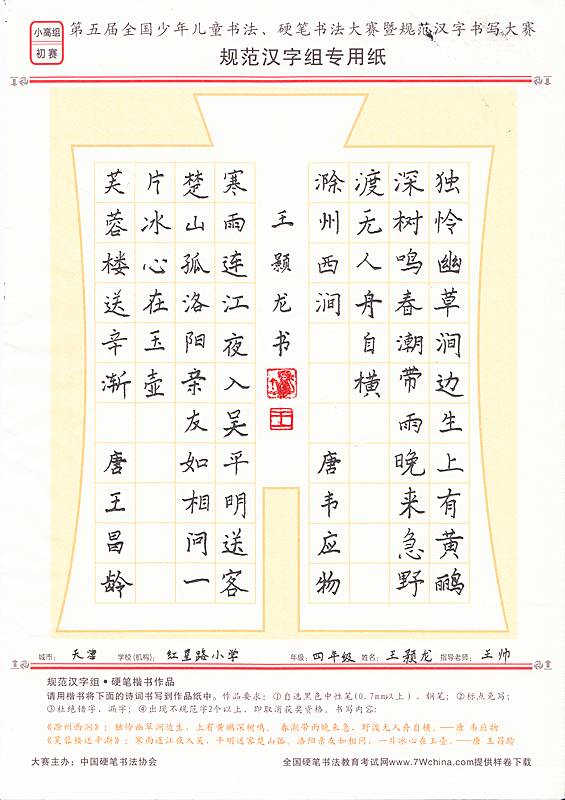 小高组
初赛
第五届全国少年儿童书法、硬笔书法大赛暨规范汉字书写大赛
规范汉字组专用纸
独怜幽草涧边生上有黄鹂
深树鸣春潮带雨晚来急野
渡无人舟自横
滁州西涧 唐韦应物
王颢龙书
王
寒雨连江夜入吴平明送客
楚山孤洛阳亲友如相问一
片冰心在玉壶
芙蓉楼送辛渐 唐王昌龄
城市: 天津 学校(机构): 红星路小学 年级: 四年级 姓名: 王颢龙 指导老师: 王帅
规范汉字组•硬笔楷书作品
请用楷书将下面的诗词书写到作品纸中。作品要求：①自选黑色中性笔(0.7mm以上)、钢笔；②标点免写；
③杜绝错字、漏字；④出现不规范字2个以上，即取消获奖资格。书写内容:
《滁州西涧》：独怜幽草涧边生，上有黄鹂深树鸣。 春潮带雨晚来急，野渡无人舟自横。——唐 韦应物
《芙蓉楼送辛渐》：寒雨连江夜入吴，平明送客楚山孤。洛阳亲友如相问，一片冰心在玉壶。——唐 王昌龄
大赛主办：中国硬笔书法协会 全国硬笔书法教育考试网www.7Wchina.com提供样卷下载